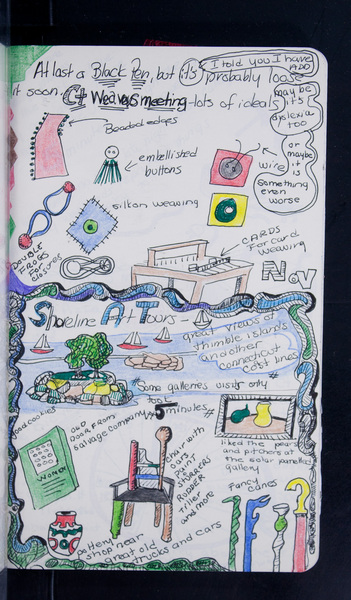 At last a Black Pen, but it's probably loose
it soon.
I told you I have
ADD
maybe
it's
dyslexia
too
or
maybe
it is
something
even
worse
Ct Weavers meeting - lots of ideas!
Beaded edges
embellished
buttons
wire
silk on weaving
DOUBLE
FROGS
FOR
closures
CARDS
For card
weaving
Nov
Shoreline Art Tours -
great views of
thimble islands
and other
Connecticut
coast lines
*Some galleries visits only
took
5 minutes*
good cookies
WOMEN
OLD
DOOR FROM
salvage company
Chair with
oars
paint
stirrers
Ruler
and more
liked the pears
and pitchers at
the
gallery
Fancy
canes
shop near
great old trucks and cars